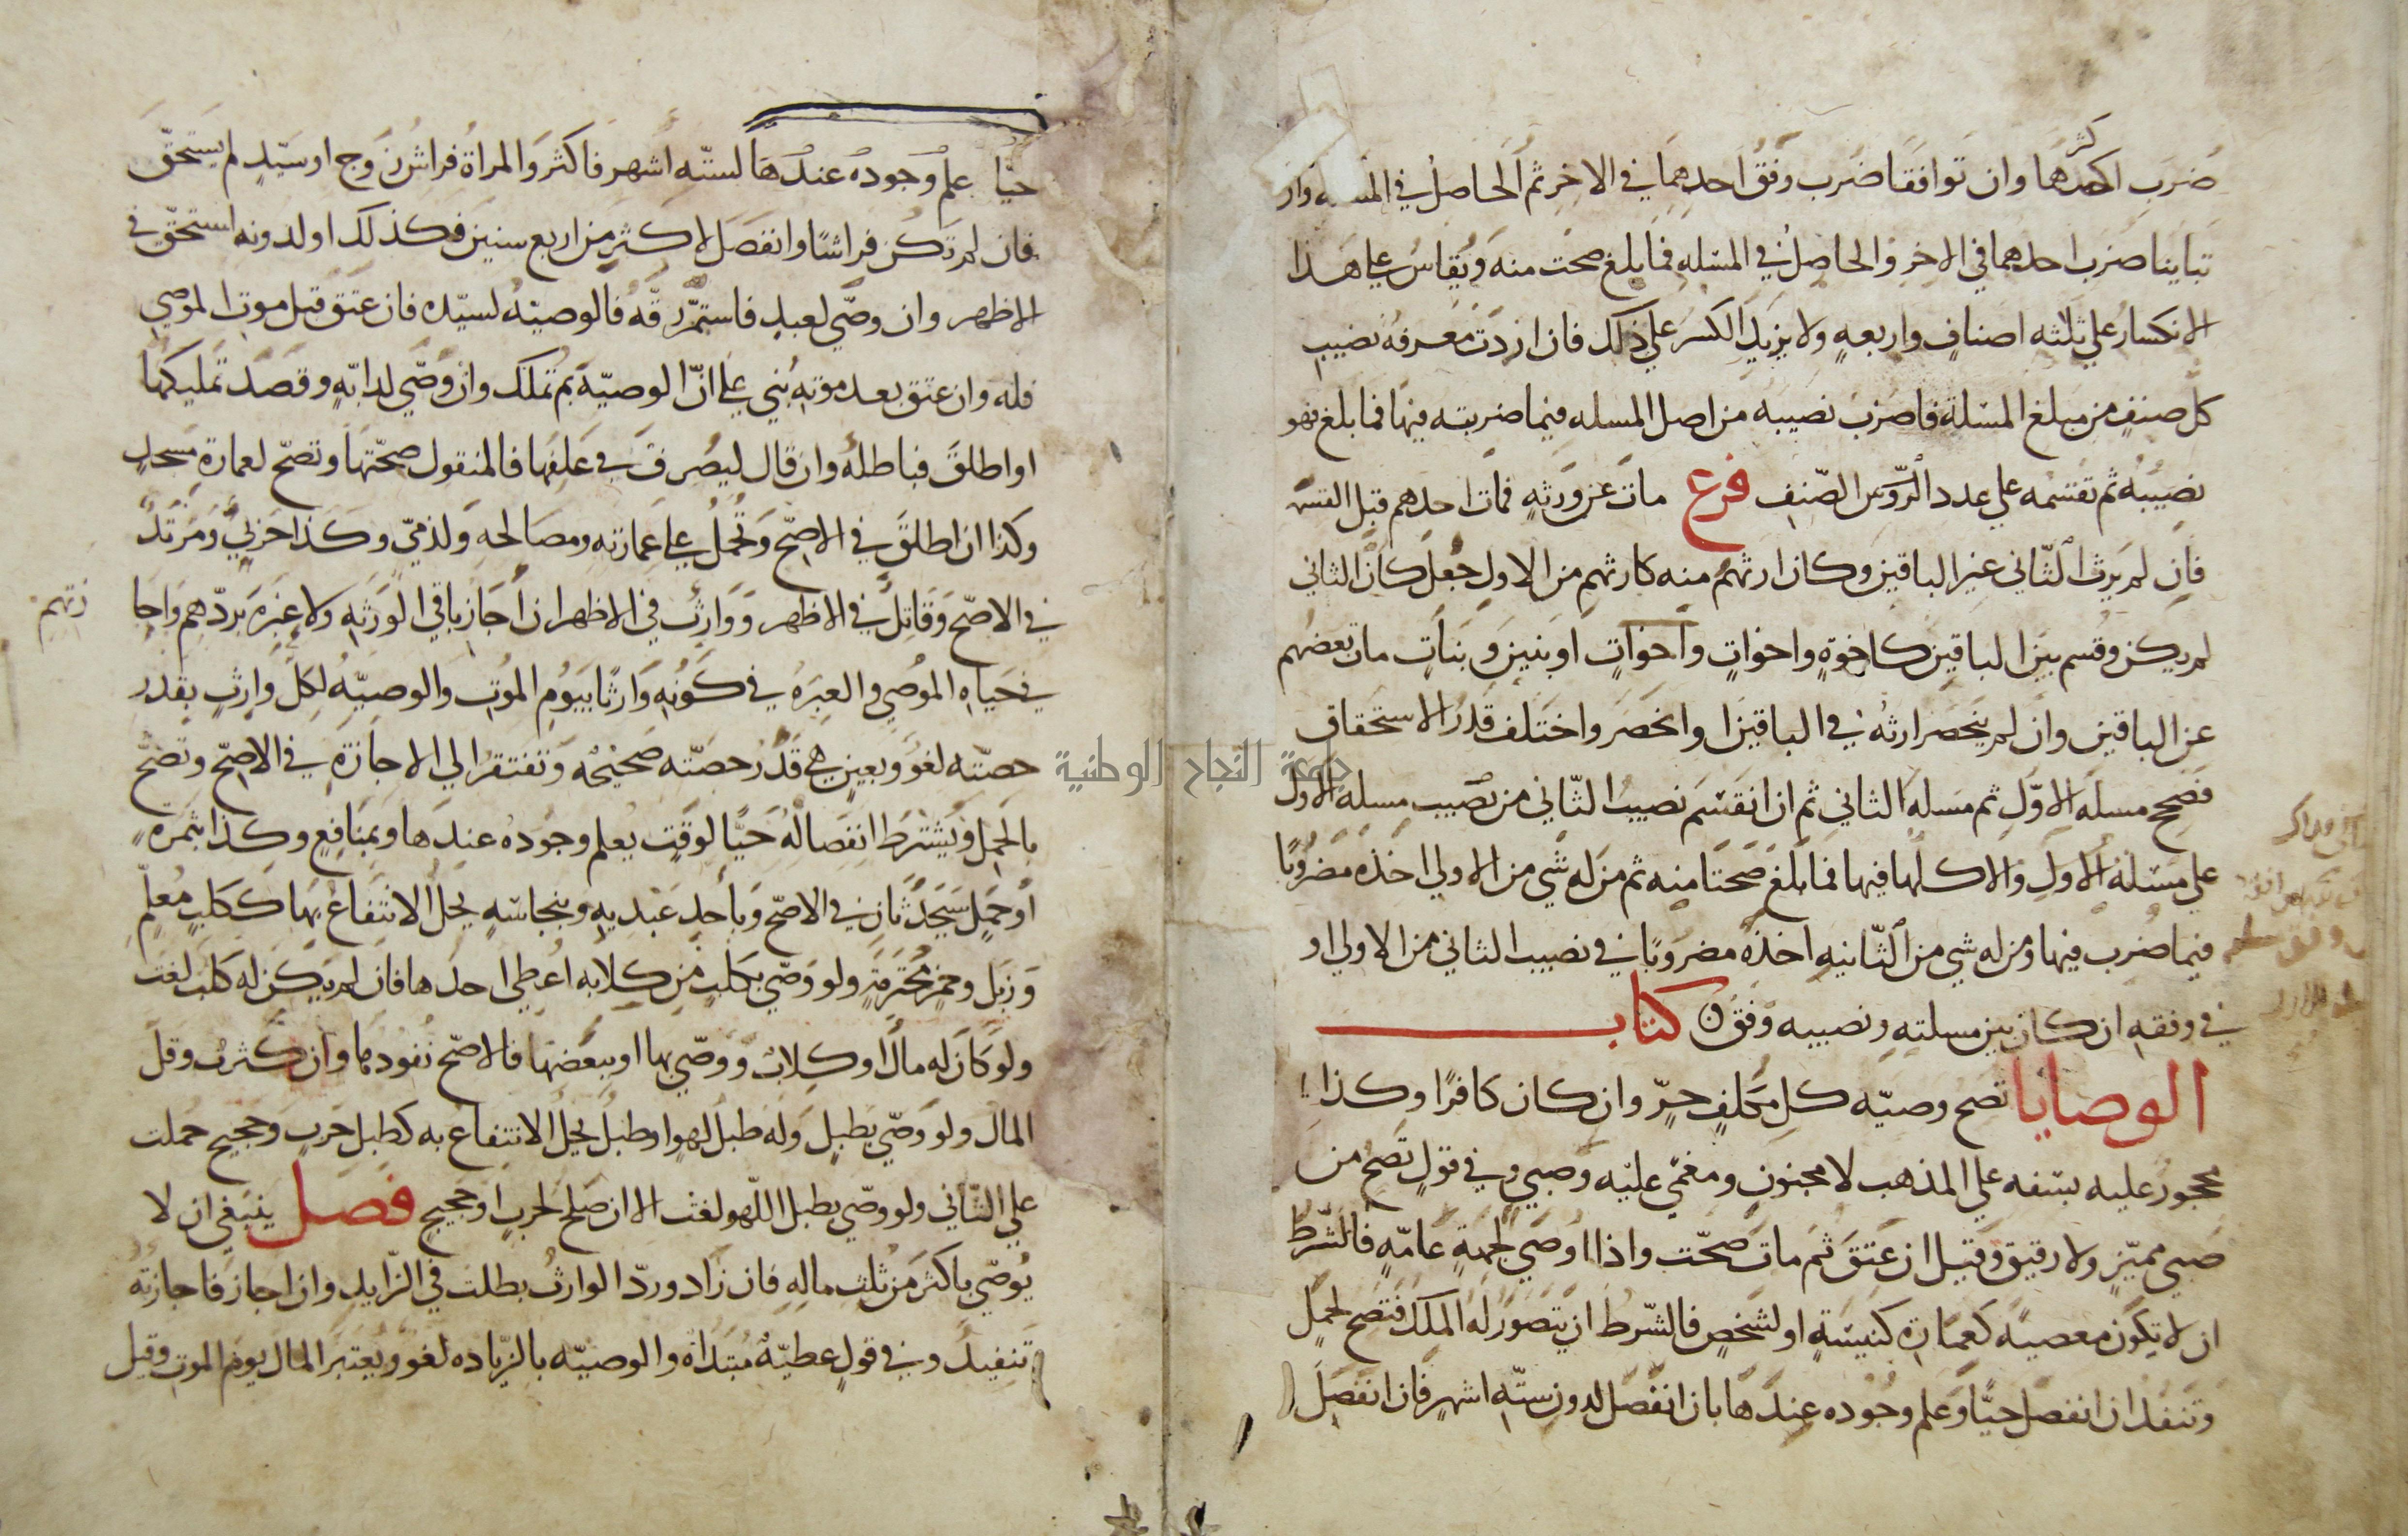 ضرب اكثرهما وان توافقا ضرب وفق احدهما في الاخر ثم الحاصل في المسله وان
تباينا ضرب احدهما في الاخر والحاصل في المسله فما بلغ صحت منه ويقاس علي هذا
الانكسار علي ثلثه اصناف واربعه ولا يزيد الكسر علي ذلك فان اردت معرفه نصيب
كل صنف من مبلغ المسلة فاضرب نصيبه من اصل المسله فيما ضربته فيها فما بلغ فهو
نصيبه ثم تقسمه علي عدد الروس الصنف فرع مات عن ورثه فمات احدهم قبل القسمه
فان لم يرث الثاني غير الباقين وكان ارثهم منه كارثهم من الاول جعل كان الثاني
لم يكن وقسم بين الباقين كاخوة واخوات واخوات او بنين وبنات مات بعضهم
عن الباقين وان لم ينحصر ارثه في الباقين او انحصر واختلف قدر الاستحقاق
فصحح مسله الاول ثم مسله الثاني ثم ان انقسم نصيب الثاني من نصيب مسله الاول
علي مسئلة الاول والا كلها فيها فما بلغ صحتا منه ثم من له شي من الاولي اخذه مضروبا
فيما ضرب فيها ومن له شي من الثانيه اخذه مضروبا في نصيب الثاني من الاولي او
في وفقه ان كان بين مسلته ونصيبه وفق كتاب
الوصايا تصح وصيه كل مكلف حر وان كان كافرا وكذا
محجور عليه بسفه علي المذهب لا مجنون ومغمي عليه وصبي وفي قول تصح من
صبي مميز ولا رقيق وقيل ان عتق ثم مات صحت واذا اوصي لجهة عامه فالشرط
ان لا يكون معصيه كعمارة كنيسة او لشخص فالشرط ان يتصور له الملك فتصح لحمل
وتنفذ ان انفصل حيا وعلم وجوده عندها بان انفصل لدون سته اشهر فان انفصل
حيا علم وجوده عندها لسته اشهر فاكثر والمراة فراش زوج او سيد لم يستحق
فان لم تكن فراشا وانفصل لاكثر من اربع سنين فكذلك او لدونه استحق في
الاظهر وان وصي لعبد فاستمر رقه فالوصيه لسيده فان عتق قبل موت الموصي
فله وان عتق بعد موته بني علي ان الوصية بم تملك وان وصي لدابه وقصد تمليكها
او اطلق فباطله وان قال ليصرف في علفها فالمنقول صحتها وتصح لعمارة مسجد
وكذا ان اطلق في الاصح وتحمل علي عمارته ومصالحه ولذمي وكذا حربي ومرتد
في الاصح وقاتل في الاظهر ووارث في الاظهر ان اجاز باقي الورثه ولا عبرة بردهم واجا
زتهم
في حياه الموصي والعبره في كونه وارثا بيوم الموت والوصيه لكل وارث بقدر
حصته لغو وبعين هي قدر حصته صحيحه وتفتقر الي الاجازة في الاصح وتصح
بالحمل ويشترط انفصاله حيا لوقت يعلم وجوده عندها وبمنافع وكذا بثمره
او حمل سيحدثان في الاصح وباحد عبديه وبنجاسه يحل الانتفاع بها ككلب معلم
وزبل وخمر محترمة ولو وصي بكلب من كلابه اعطي احدها فان لم يكن له كلب لغت
ولو كان له مال وكلاب ووصي بها او ببعضها فالاصح نفودها وان كثرت وقل
المال ولو وصي بطبل وله طبل لهو وطبل يحل الانتفاع به كطبل حرب وحجيج حملت
علي الثاني ولو وصي بطبل اللهو لغت الا ان صلح لحرب او حجيج فصل ينبغي ان لا
يوصي باكثر من ثلث ماله فان زاد ورد الوارث بطلت في الزايد وان اجاز فاجازته
تنفيذ وفي قول عطية مبتداة والوصيه بالزياده لغو ويعتبر المال يوم الموت وقيل
جامعة النجاح الوطنية